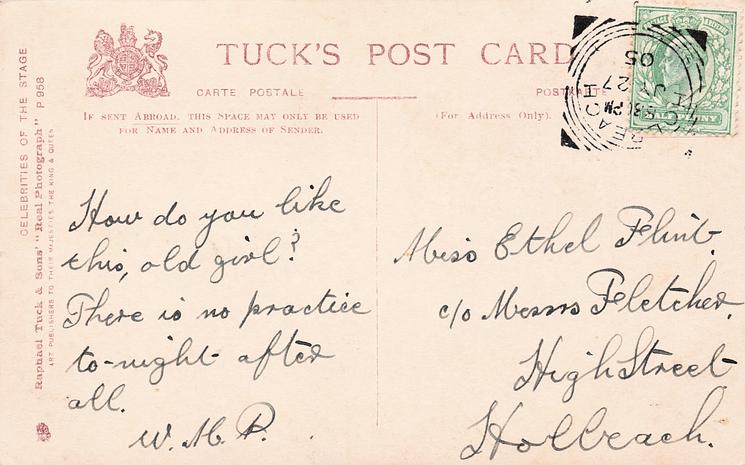 TUCK'S POST CARD
CARTE POSTALE
POSTKARTE
IF SENT ABROAD, THIS SPACE MAY ONLY BE USED
FOR NAME AND ADDRESS OF SENDER.
(For Address Only).
CELEBRITIES OF THE STAGE
Raphael Tuck & Sons' "Real Photograph" P 958
ART PUBLISHERS TO THEIR MAJESTIES THE KING & QUEEN
POSTAGE
HALFPENNY
HOLBEACH
5.30 PM
JY 27
05
How do you like
this, old girl?
There is no practice
to-night after
all.
W. M. P.
Miss Ethel Flint.
c/o Messrs Fletcher.
High Street
Holbeach.